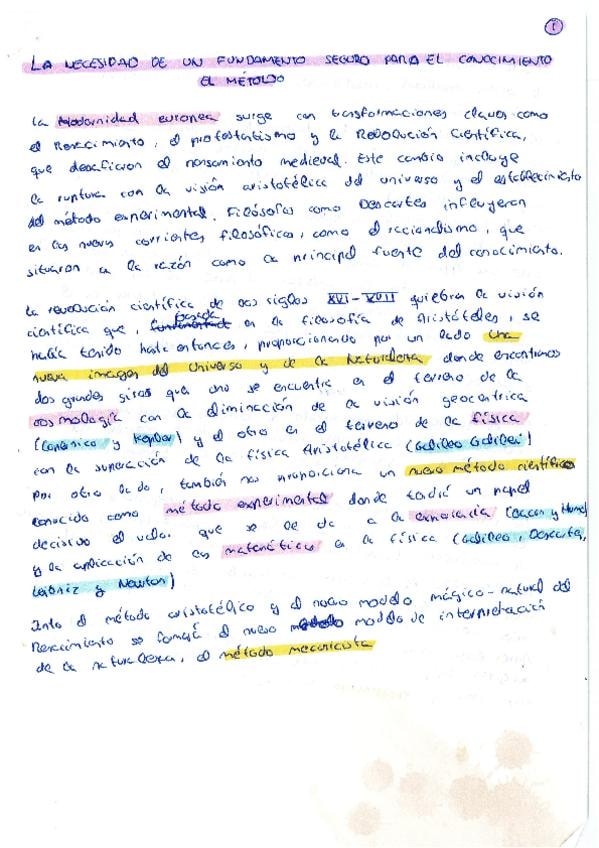 1
LA NECESIDAD DE UN FUNDAMENTO SEGURO PARA EL CONOCIMIENTO
EL MÉTODO
La Modernidad europea surge con transformaciones claves como
el Renacimiento, el protestantismo y la Revolución Científica,
que desafiaron el pensamiento medieval. Este cambio incluye
la ruptura con la visión aristotélica del universo y el establecimiento
del método experimental. Filósofos como Descartes influyeron
en las nuevas corrientes filosóficas, como el racionalismo, que
situaron a la razón como la principal fuente del conocimiento.
La revolución científica de los siglos XVI-XVII quiebra la visión
científica que, basada en la filosofía de Aristóteles, se
había tenido hasta entonces, proporcionando por un lado una
nueva imagen del Universo y de la Naturaleza donde encontramos
dos grandes giros que uno se encuentra en el terreno de la
cosmología con la eliminación de la visión geocéntrica
(Copérnico y Kepler) y el otro en el terreno de la física
con la superación de la física Aristotélica (Galileo Galilei)
Por otro lado, también nos proporciona un nuevo método científico
conocido como método experimental donde tendrá un papel
decisivo el valor que se le da a la experiencia (Bacon y Hume)
y la aplicación de las matemáticas en la física (Galileo, Descartes,
Leibniz y Newton)
Junto el método aristotélico y el nuevo modelo mágico-natural del
Renacimiento se formará el nuevo modelo de interpretación
de la naturaleza, el método mecanicista